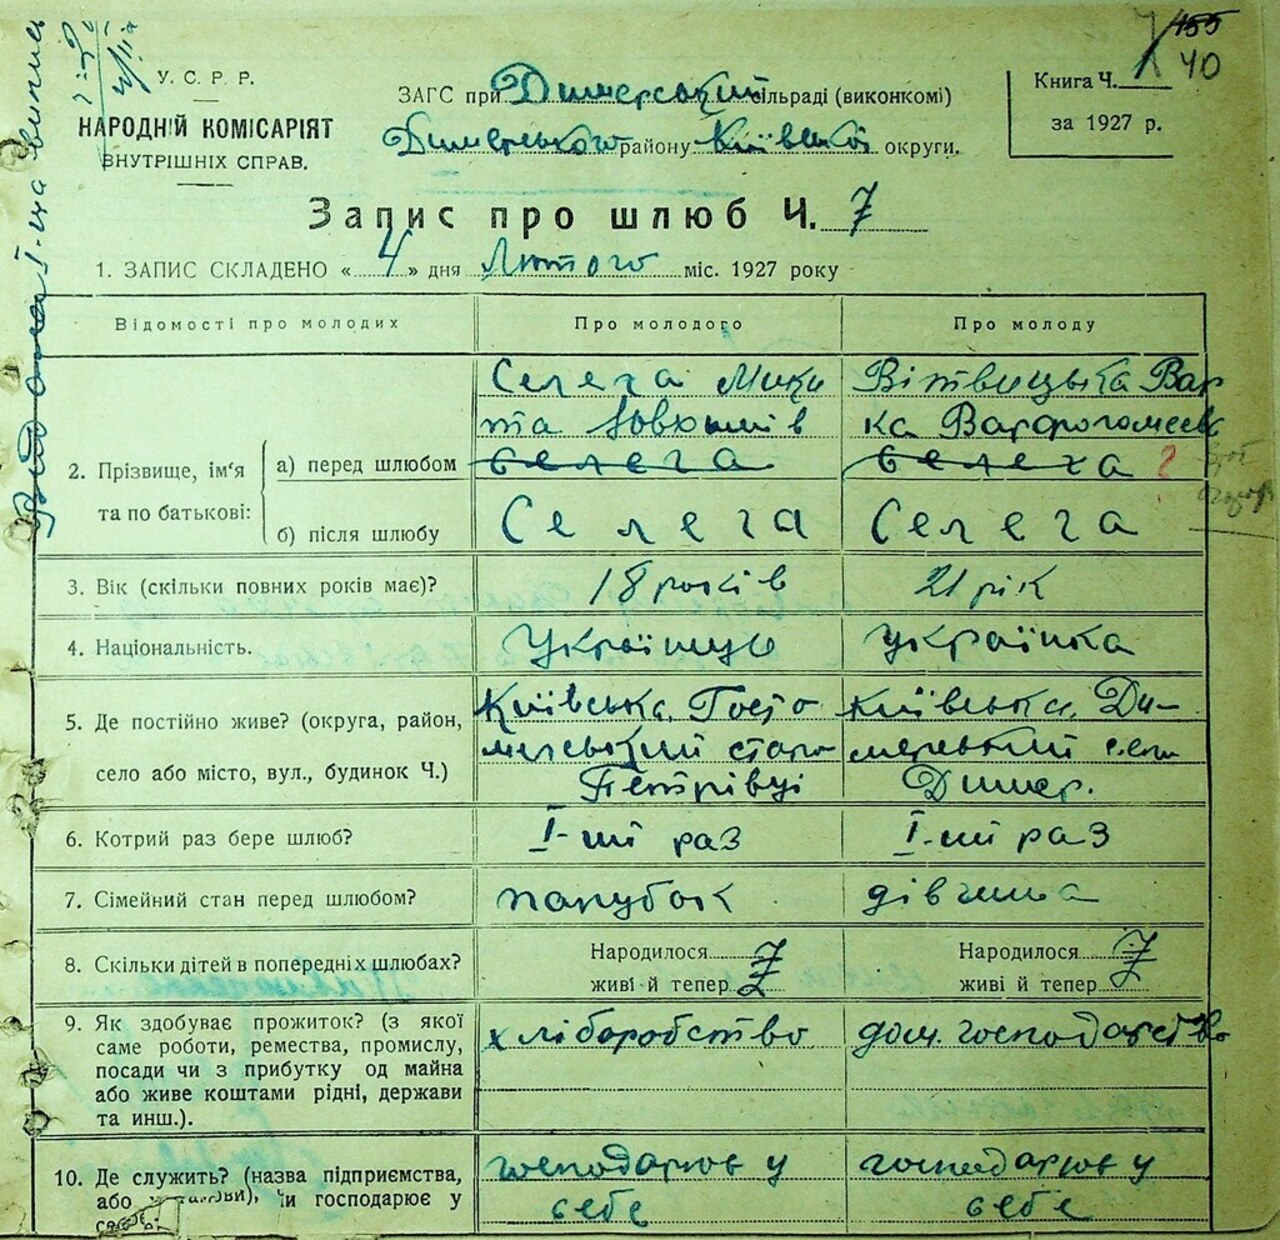 155
40
У. С. Р. Р.
НАРОДНІЙ КОМІСАРІЯТ
ВНУТРІШНІХ СПРАВ.
ЗАГС при Димерський сільраді (виконкомі)
Димерського району Київської округи.
Книга Ч. 1
за 1927 р.
Запис про шлюб Ч. 7
1. ЗАПИС СКЛАДЕНО « 4 » дня Лютого міс. 1927 року
Відомості про молодих
Про молодого
Про молоду
2. Прізвище, ім'я та по батькові:
а) перед шлюбом
б) після шлюбу
Селега Мики
та Ювхимів
Селега
Селега
Вітвицька Вар
ка Варфоломеевa
Селеха
Селега
3. Вік (скільки повних років має)?
18 років
21 рік
4. Національність.
Українець
Українка
5. Де постійно живе? (округа, район,
село або місто, вул., будинок Ч.)
Київська, Госто
мельський старо
Петрівці
Київська, Ди-
мерський село
Димер.
6. Котрий раз бере шлюб?
І-ий раз
І-ий раз
7. Сімейний стан перед шлюбом?
парубок
дівчина
8. Скільки дітей в попередніх шлюбах?
Народилося
живі й тепер
Народилося
живі й тепер
9. Як здобуває прожиток? (з якої
саме роботи, ремества, промислу,
посади чи з прибутку од майна
або живе коштами рідні, держави
та инш.).
хліборобство
дом. господарство
10. Де служить? (назва підприємства,
або чи господарює у
господарює у
себе
господарює у
себе